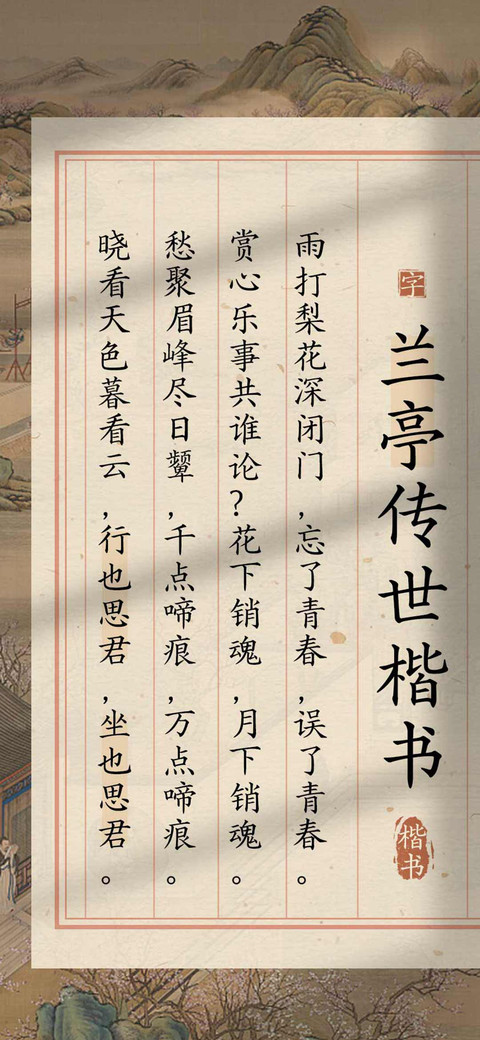 字
兰亭传世楷书
楷书
雨打梨花深闭门，忘了青春，误了青春。
赏心乐事共谁论？花下销魂，月下销魂。
愁聚眉峰尽日颦，千点啼痕，万点啼痕。
晓看天色暮看云，行也思君，坐也思君。